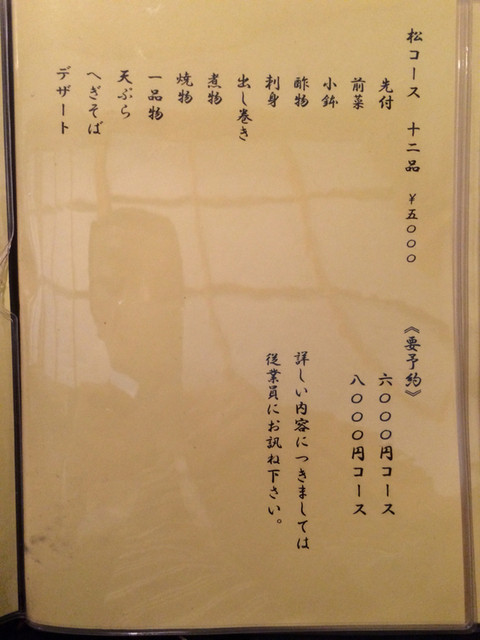 松コース 十二品 ¥五〇〇〇
先付
前菜
小鉢
酢物
刺身
出し巻き
煮物
焼物
一品物
天ぷら
へぎそば
デザート
《要予約》
六〇〇〇円コース
八〇〇〇円コース
詳しい内容につきましては
従業員にお訊ね下さい。